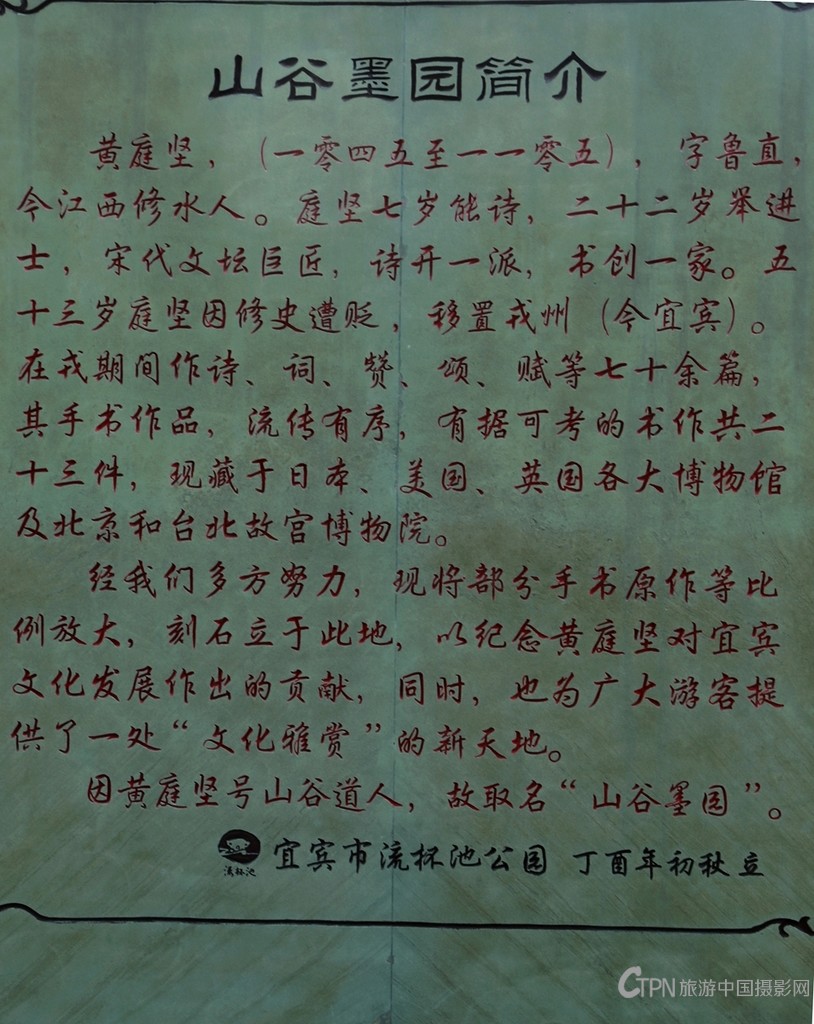 山谷墨园简介
黄庭坚，（一零四五至一一零五），字鲁直，
今江西修水人。庭坚七岁能诗，二十二岁举进
士，宋代文坛巨匠，诗开一派，书创一家。五
十三岁庭坚因修史遭贬，移置戎州（今宜宾）。
在戎期间作诗、词、赞、颂、赋等七十余篇，
其手书作品，流传有序，有据可考的书作共二
十三件，现藏于日本、美国、英国各大博物馆
及北京和台北故宫博物院。
经我们多方努力，现将部分手书原作等比
例放大，刻石立于此地，以纪念黄庭坚对宜宾
文化发展作出的贡献，同时，也为广大游客提
供了一处“文化雅赏”的新天地。
因黄庭坚号山谷道人，故取名“山谷墨园”。
流杯池
宜宾市流杯池公园 丁酉年初秋立
CTPN旅游中国摄影网